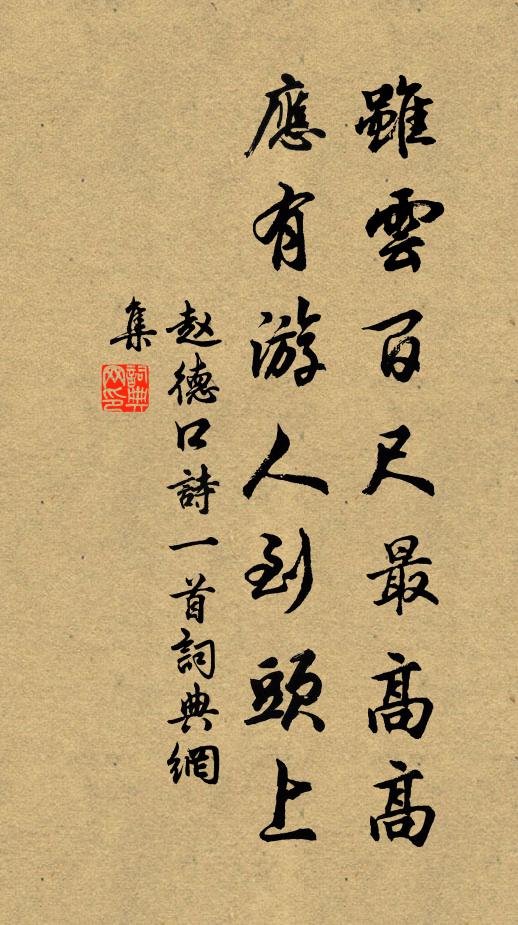 雖雲百尺最高高
應有游人到頭上
赵德口詩一首詞典網
集
詞典
网印